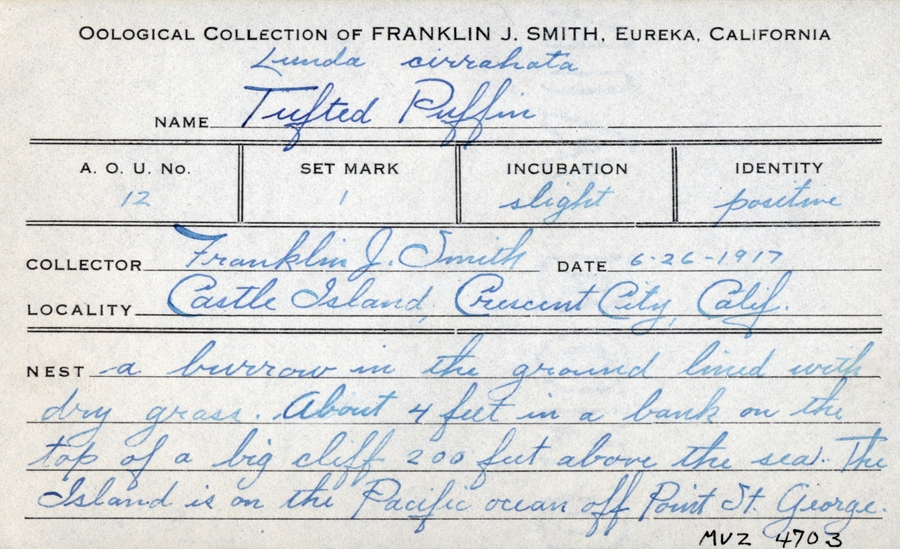 OOLOGICAL COLLECTION OF FRANKLIN J. SMITH, EUREKA, CALIFORNIA
Lunda cirrahata
NAME Tufted Puffin
A. O. U. NO. SET MARK INCUBATION IDENTITY
12 1 slight positive
COLLECTOR Franklin J. Smith DATE 6-26-1917
LOCALITY Castle Island, Crescent City, Calif.
NEST a burrow in the ground lined with
dry grass. About 4 feet in a bank on the
top of a big cliff 200 feet above the sea. The
Island is on the Pacific ocean off Point St. George.
MVZ 4703